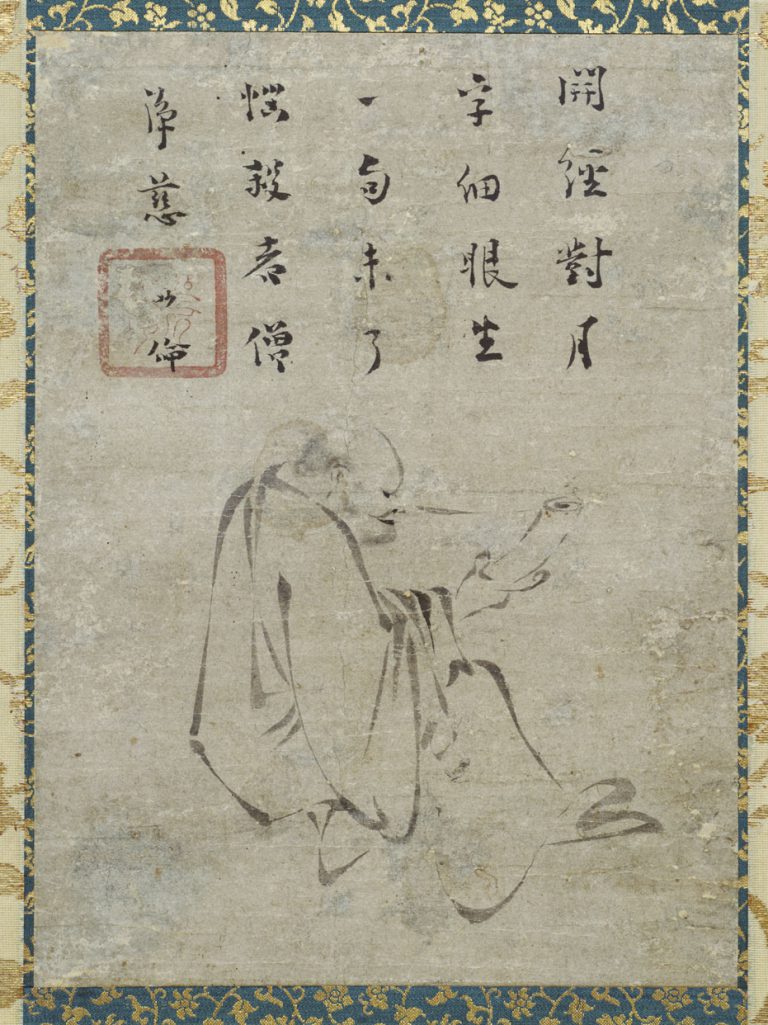 開經對月
字細眼生
一句未了
惱殺者僧
淨慈妙倫